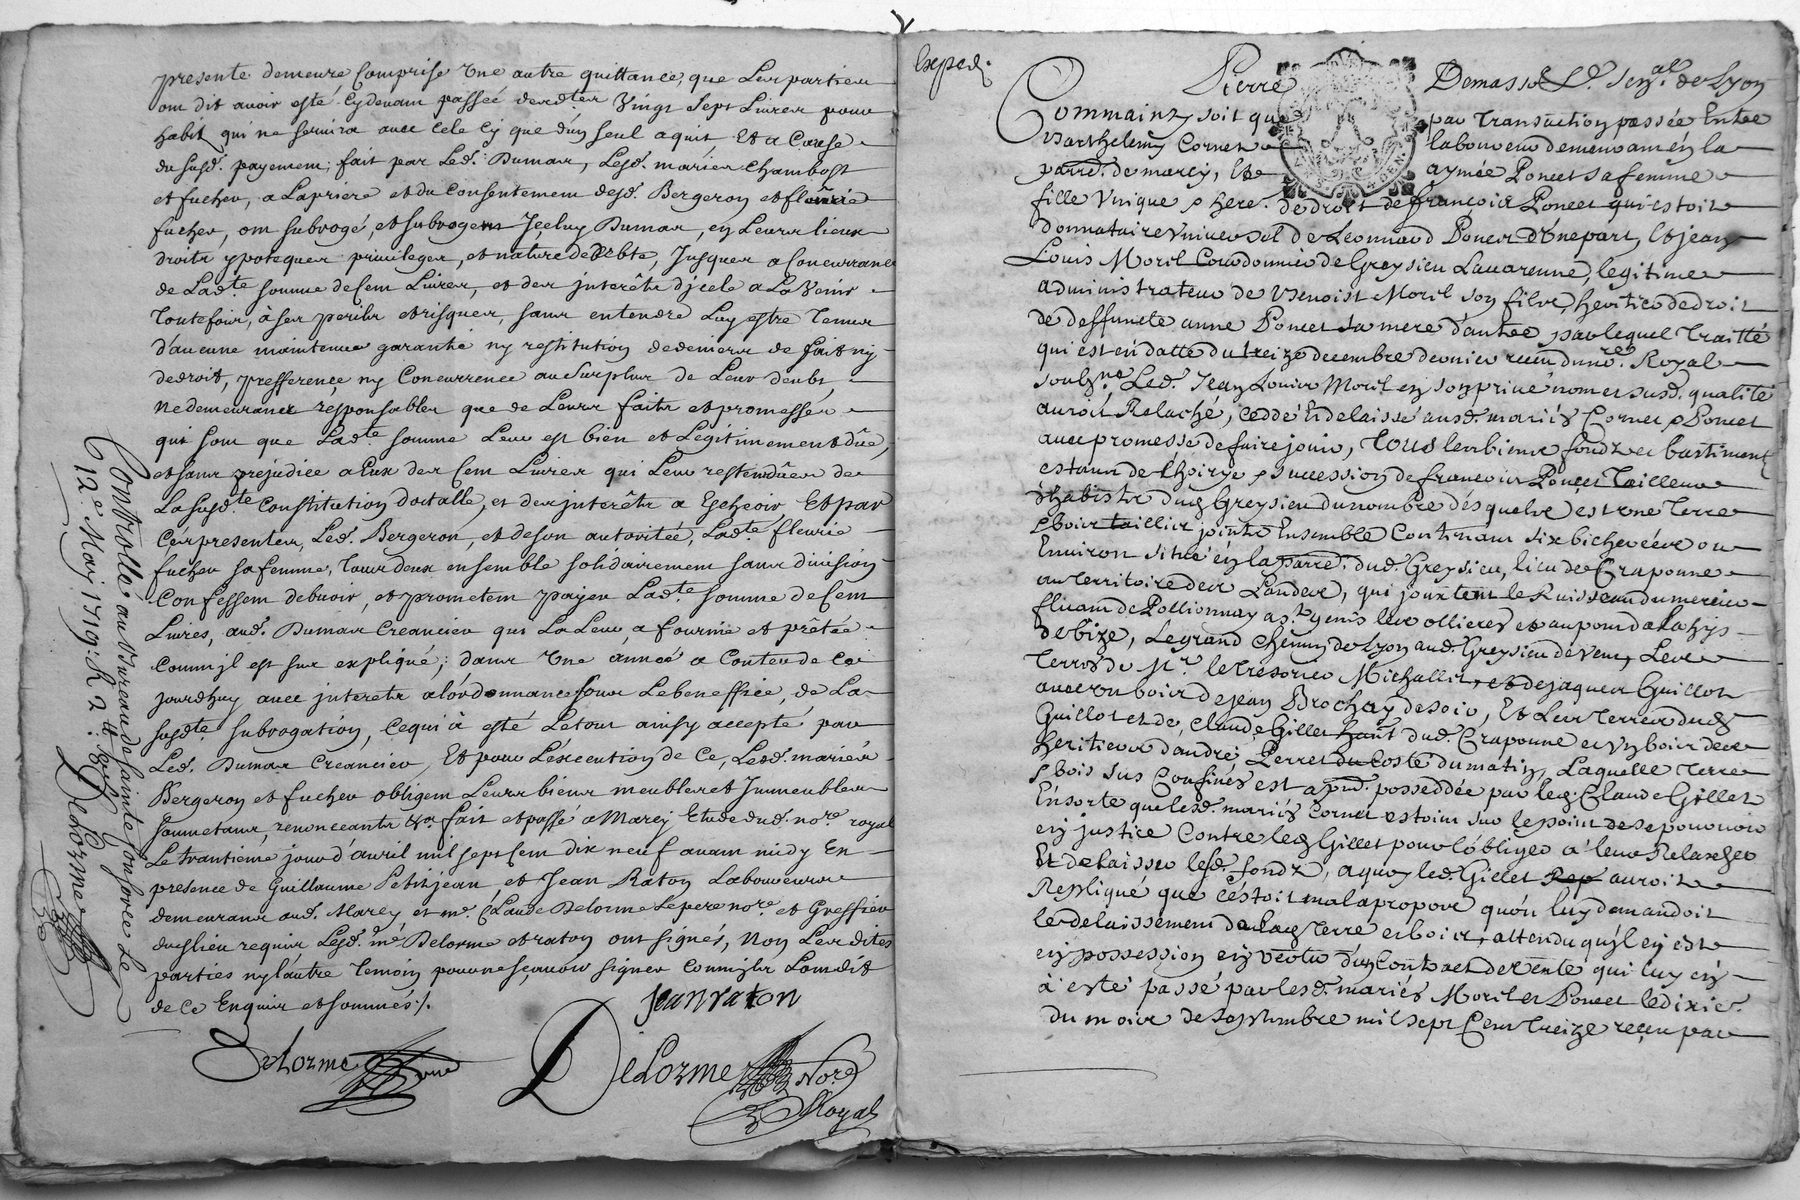 presente demeure Comprise Une autre quittance, que Les parties
ont dit avoir esté Cydevant passée desd.tes Vingt Sept Livres pour
habit qui ne servira avec Cele Cy que d'un seul aquit, Et a Cause
du susd. payement, fait par Led. Dumas, Lesd. mariés Chambost
et fucher, a La priere et du Consentement desd. Bergeron et fleurie
fucher, ont subrogé et subrogent Jceluy Dumas, en Leurs lieux
droits ypoteques privileges, et nature de debte, Jusques a Concurrance
de Lad.te somme de Cent Livres, et des jnterêts d'jcele a La Venir
Toutefois, à ses perils et risques, sans entendre Luy estre Tenus
d'aucune maintenue garantie ny restitution de deniers de fait ny
de droit, presference ny Concurrence au Surplus de Leur deubt,
Ne demeurants responsables que de Leurs faits et promesses
qui sont que Lad.te somme Leur est bien et Legitimement dûe,
et sans prejudice a Eux des Cent Livres qui Leur restent dûes de
La susd.te Constitution doctalle, et des jnterêts a Escheoir, Et par
Ces presentes, Led. Bergeron, et de son autorité, Lad.te fleurie
fucher sa femme, Tous deux ensemble solidairement sans division
Confessent debvoir, et prometent payer Lad.te somme de Cent
Livres, aud. Dumas Creancier qui La Leur a fournie et prêtée
Comm' jl est sus expliqué, dans Une année a Conter de Ce
jourdhuy avec jnterets a l'ordonnance sous Le beneffice, de La
susd.te subrogation, Ce qui à esté Le tout ainsy accepté par
Led. Dumas Creancier, Et pour L'execution de Ce, Lesd. mariés
Bergeron et fucher obligent Leurs biens meubles et Jmmeubles
soumetans, renonceants &a. fait et passé a Marcy Etude dud. no.re royal
Le trantieme jour d'avril mil sept Cent dix neuf avant midy En
presence de Guillaume Petitjean et Jean Raton Laboureurs
demeurants aud. Marcy et m.e Claude Delorme Le pere no.re et Greffier
dud lieu requis Lesd. m.e Delorme et raton ont signés, Non Les dites
parties ny l'autre Temoin pour ne sçavoir signer Comm'jls L'ont dit
de Ce Enquis et sommés ./.
Jean raton
Delorme
Delorme No.re
Royal
Controllé au Bureau de sainte Consorce Le
12.e May 1719: R 2
Delorme
Exped.
Pierre Demasso S.r Sen.al de Lyon
Comm'ainsy soit que par Transaction passée Entre
Barthelemy Cornet laboureur demeurant en la
parr. de marcy, Et aymée Poncet sa femme
fille Unique & here. de droit de françois Poncet qui estoit
donnataire Universel de Leonnard Poncet d'une part, Et jean
Louis Moril Courdonnier de Greysieu Lavarenne, legitime
administrateur de Benoist Moril son fils, heritier de droit
de deffuncte anne Poncet sa mere d'autre, par lequel Traitté
qui est en datte du treize decembre dernier receu du no.re Royal
soubz.ne Led. Jean Louis Moril en son privé nom et susd. qualité
auroit Relaché, cedde Et delaissé ausd. mariés Cornet & Poncet
avec promesse de faire jouir, Tous les biens fondz et bastiments
estants de l'hoirye & succession de francois Poncet Tailleur
d'habist dud Greysieu du nombre des quels est une Terre
& bois taillis joints Ensemble Contenant six bicherées ou
Environ situé en la parr. dud. Greysieu, lieu de Craponne
au territoire des Landes, qui jouxtent le Ruisseau du mercier
fluant de Pollionnay a st. genis les ollieres
de bize, Le grand chemin de Lyon aud. Greysieu de vent, Les
Terres de M.r le tresorier Michallet, et de jaques Guillot
avec un bois de jean Brochay de soir, Et Les Terres dud
Guillot et de, Claude Gillet dud. Craponne et un bois des
heritiers d'andré Perret du Coste du matin, Laquelle Terre
& bois sus Confinés est a pnt. posseddée par led. Claude Gillet
Ensorte que lesd. mariés Cornet estoint sur le point de se pourvoir
en justice Contre led Gillet pour l'obliger a leur Relascher
Et delaisser lesd. fondz, a quoy led. Gillet auroit
Repliqué que c'estoit mal a propos qu'on luy demandoit
le delaissement de lad Terre et bois, attendu qu'jl en est
en possession en vertu d'un Contract de vente qui luy en
à esté passé par lesd. mariés Moril et Poncet le dixie.
du mois de Septembre mil sept Cent Treize receu par